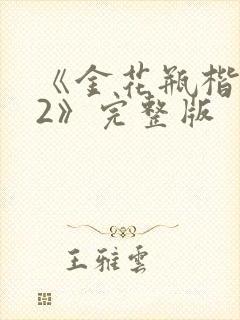 《金花瓶楷
2》完整版
王雅雲